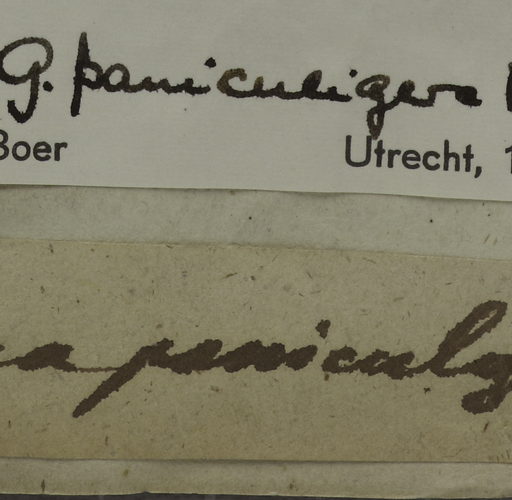 G. paniculigera
Boer Utrecht, 1
a paniculig